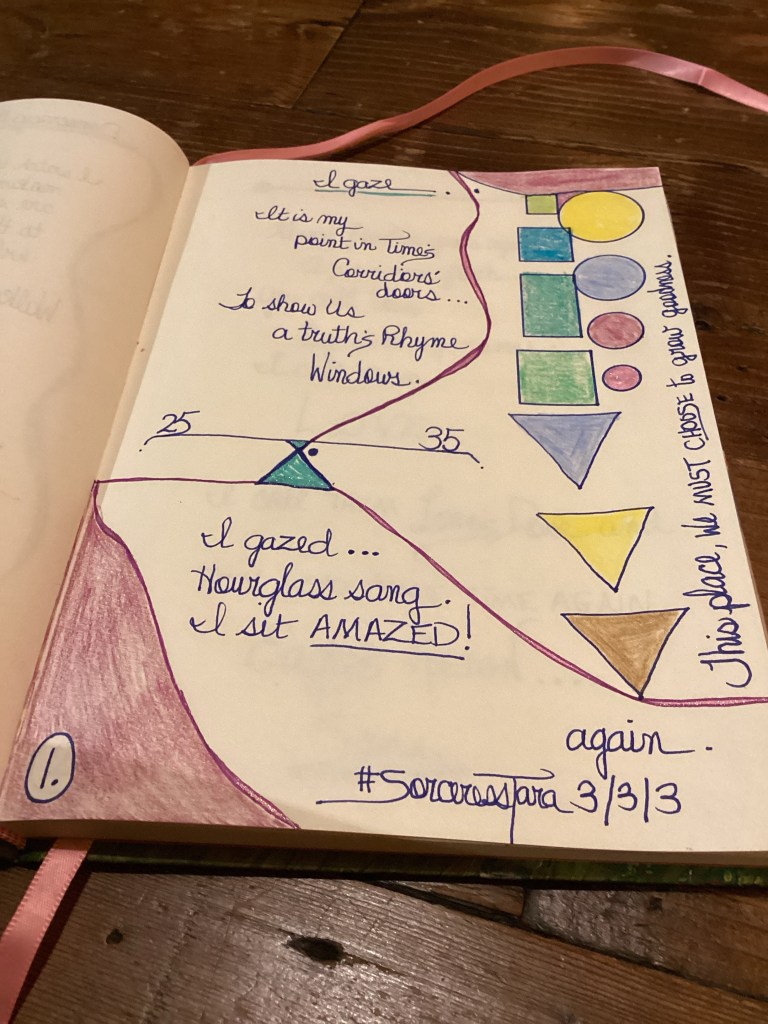 I gaze.
It is my
point in Time's
Corridors'
doors...
To show Us
a truth's Rhyme
Windows.
25 35
I gazed...
Hourglass sang.
I sit AMAZED!
This place, We MUST CHOOSE to grow goodness.
again.
#SorceressTara 3/3/3
1.